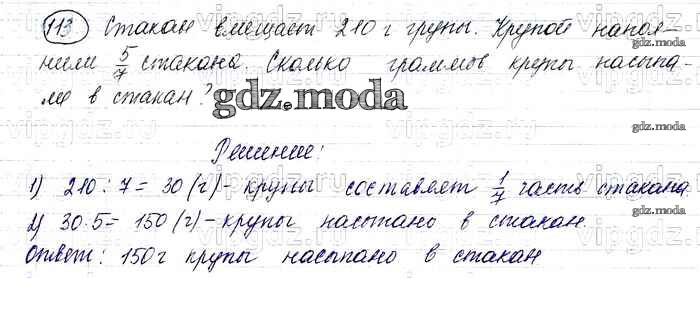 113 Стакан вмещает 210 г групы. Крупой напол-
нили 5/7 стакана. Сколько граммов крупы насыпа-
ли в стакан?
gdz.moda
Решение:
1) 210 : 7 = 30 (г) - крупы составляет 1/7 часть стакана
2) 30 · 5 = 150 (г) - крупы насыпано в стакан.
Ответ: 150 г крупы насыпано в стакан
gdz.moda
gdz.moda
gdz.moda
gdz.moda
vipgdz.ru